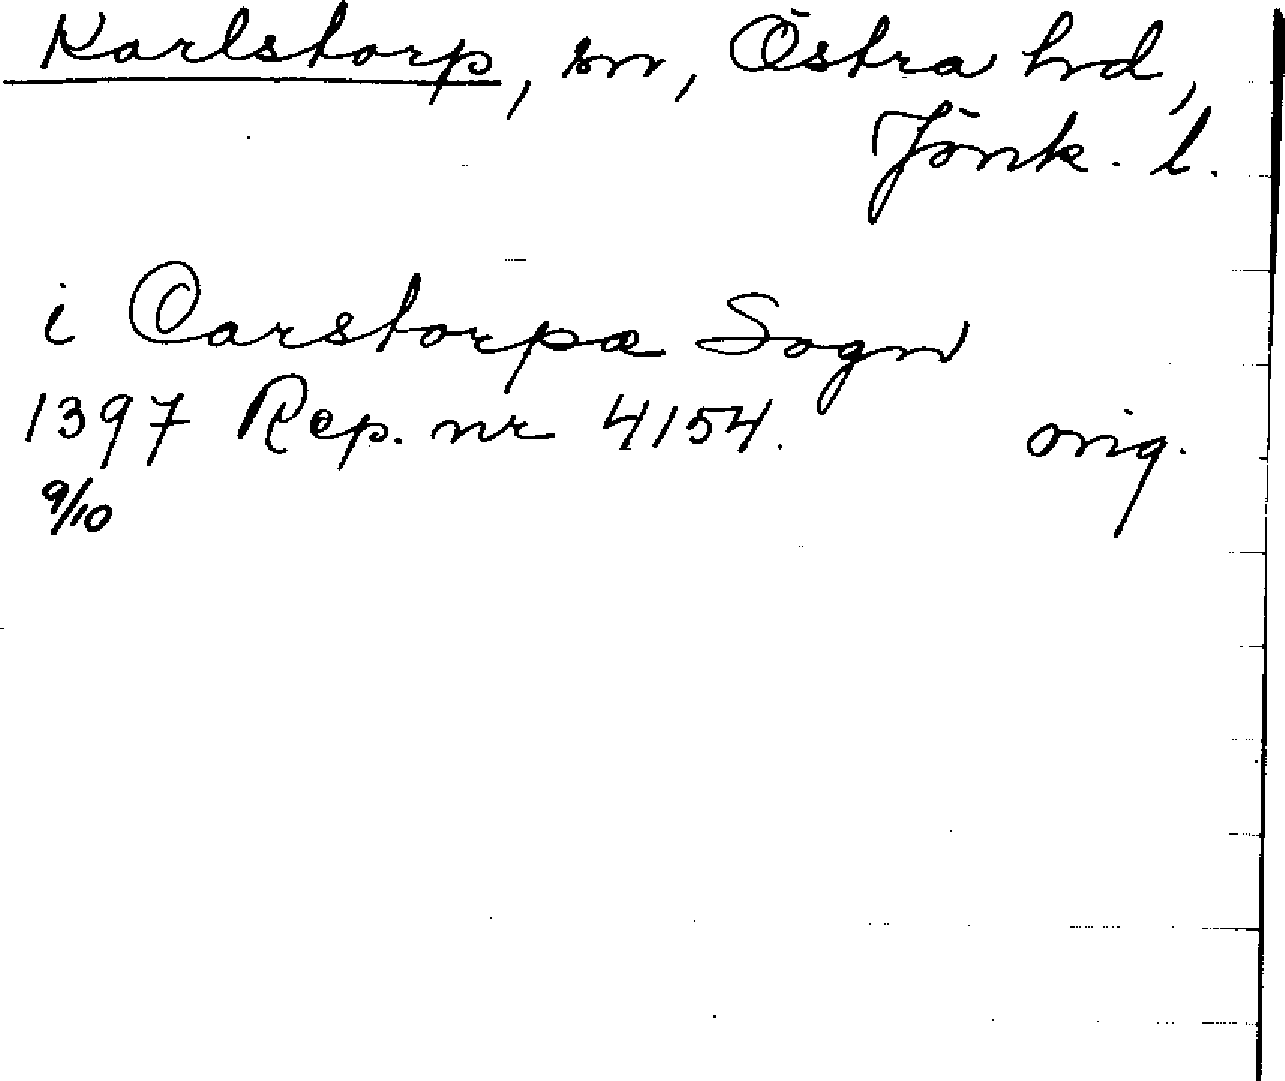 Karlstorp, sn, Östra hd,
Jönk. l.
i Carstorpa Sogn
1397 Rep. nr 4154. orig.
9/10